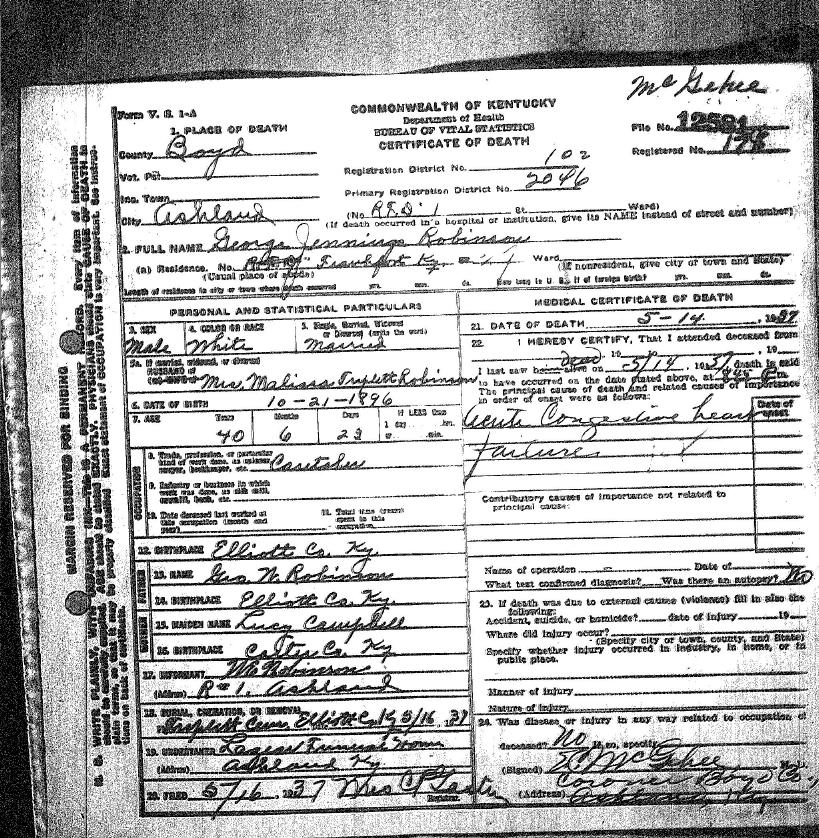 McGehee
Form V. S. 1-A
COMMONWEALTH OF KENTUCKY
Department of Health
BUREAU OF VITAL STATISTICS
CERTIFICATE OF DEATH
File No. 12581
Registered No.
1. PLACE OF DEATH
County Boyd
Vot. Pct.
Inc. Town
City Ashland
Registration District No. 102
Primary Registration District No. 2046
(No. R.F.D. 1 St. Ward)
(If death occurred in a hospital or institution, give its NAME instead of street and number)
2. FULL NAME George Jennings Robinson
(a) Residence. No. Frankfort Ky. Ward.
(Usual place of abode) (If nonresident, give city or town and State)
Length of residence in city or town where death occurred yrs. mos. ds. How long in U. S. if of foreign birth? yrs. mos. ds.
PERSONAL AND STATISTICAL PARTICULARS
3. SEX Male
4. COLOR OR RACE White
5. Single, Married, Widowed or Divorced (write the word) Married
5a. If married, widowed, or divorced
HUSBAND of
(or) WIFE of Mrs. Malissa Triplett Robinson
6. DATE OF BIRTH 10-21-1896
7. AGE Years 40 Months 6 Days 23 If LESS than 1 day, hrs. or min.
OCCUPATION
8. Trade, profession, or particular kind of work done, as spinner, sawyer, bookkeeper, etc. Caretaker
9. Industry or business in which work was done, as silk mill, sawmill, bank, etc.
10. Date deceased last worked at this occupation (month and year)
11. Total time (years) spent in this occupation
12. BIRTHPLACE Elliott Co. Ky.
FATHER
13. NAME Geo. W. Robinson
14. BIRTHPLACE Elliott Co. Ky.
MOTHER
15. MAIDEN NAME Lucy Campbell
16. BIRTHPLACE Carter Co. Ky
17. INFORMANT W E Robinson
(Address) R#1. Ashland
18. BURIAL, CREMATION, OR REMOVAL
Triplett Cem. Elliott Co. Ky 5/16, 37
19. UNDERTAKER Funeral Home
Ashland Ky
20. FILED 5/16 1937 Mrs
Registrar.
MEDICAL CERTIFICATE OF DEATH
21. DATE OF DEATH 5-14, 1937
22. I HEREBY CERTIFY, That I attended deceased from
, 19
I last saw alive on 5/14, 1937 death is said
to have occurred on the date stated above, at m.
The principal cause of death and related causes of importance
in order of onset were as follows:
Date of onset
Acute Congestive heart
failure
Contributory causes of importance not related to
principal cause:
Name of operation Date of
What test confirmed diagnosis? Was there an autopsy? No
23. If death was due to external causes (violence) fill in also the
following:
Accident, suicide, or homicide? date of injury 19
Where did injury occur?
(Specify city or town, county, and State)
Specify whether injury occurred in industry, in home, or in
public place.
Manner of injury
Nature of injury
24. Was disease or injury in any way related to occupation of
deceased? No If so, specify
(Signed) McGehee
Coroner Boyd Co.
(Address) Ashland, Ky
MARGIN RESERVED FOR BINDING